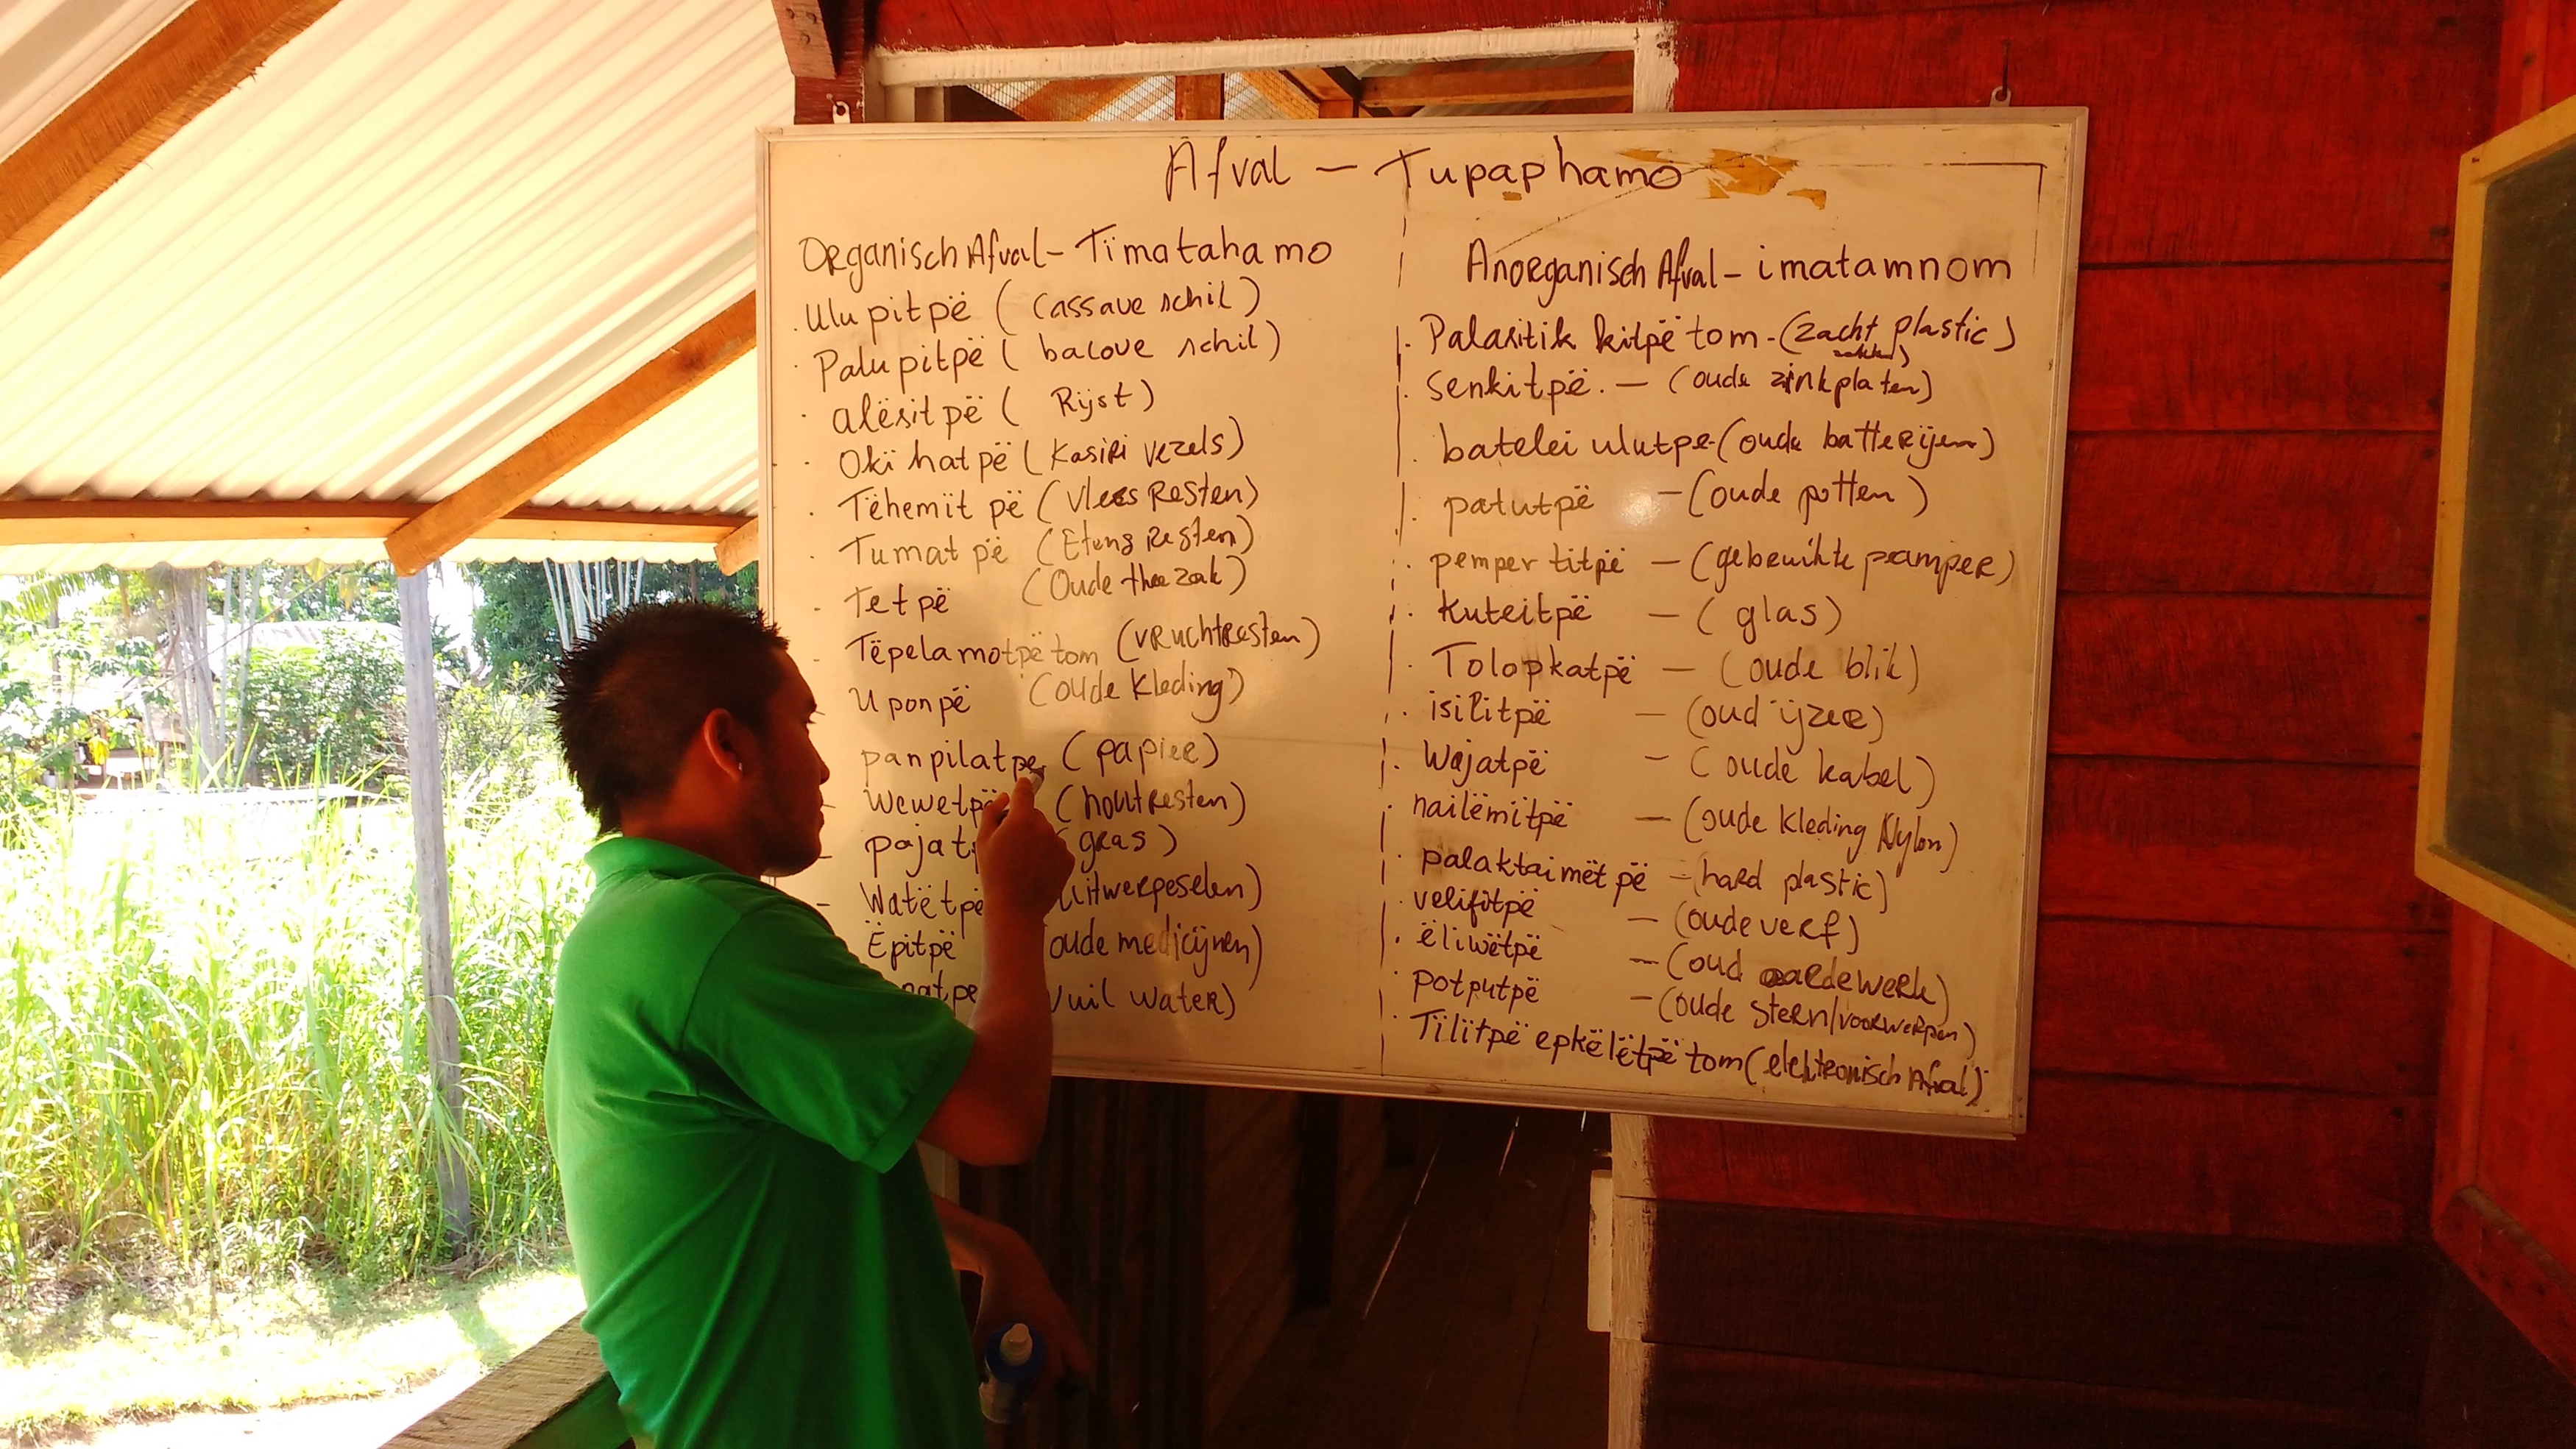 Afval - Tupaphamo
Organisch Afval - Tïmatahamo
. Ulu pitpë ( Cassave schil )
. Palu pitpë ( bacove schil )
. alësit pë ( Rijst )
. Okï hatpë ( Kasiri vezels )
. Tëhemït pë ( Vlees Resten )
. Tumat pë ( Etens Resten )
- Tet pë ( Oude thee zak )
- Tëpelamotpë tom ( vruchtresten )
- Uponpë ( oude kleding )
panpilatpe ( papier )
- Wewetpë ( houtresten )
- pajatp ( gras )
- Watëtpë uitwerpeselen )
Ëpitpë oude medicijnen )
natpe Vuil Water )
Anorganisch Afval - imatamnom
. Palasitik kitpë tom - ( zacht plastic )
. senkitpë. - ( oude zinkplaten )
. batelei ulutpe - ( oude batterijen )
. patutpë - ( oude potten )
. pemper titpë - ( gebruikte pamper )
. Kuteitpë - ( glas )
. Tolopkatpë - ( oude blik )
. isilitpë - ( oud ijzer )
. Wajatpë - ( oude kabel )
. nailëmïtpë - ( oude kleding Nylon )
. palaktaimët pë - ( hard plastic )
. velifitpë - ( oude verf )
. ëliwëtpë - ( oud aardewerk )
. potputpë - ( oude stern/voorwerpen )
. Tïlïtpë epkëlëtpë tom ( elektronisch Afval )